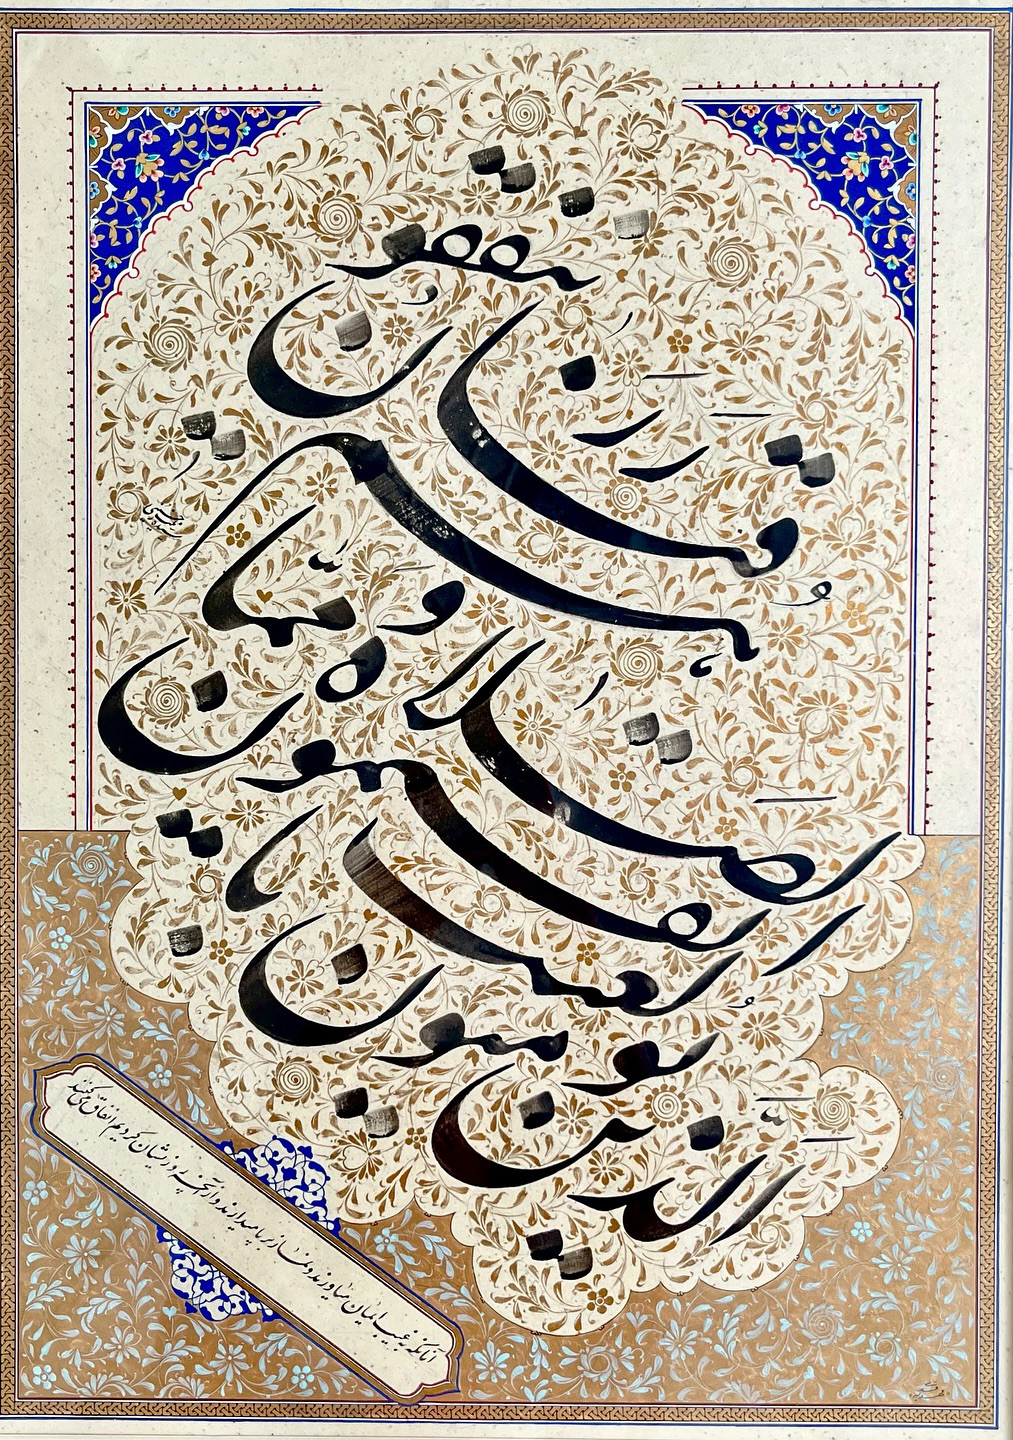 الذین یؤمنون
بالغیب و یقیمون
الصلاة و مما
رزقناهم ینفقون
آنانکه به غیب ایمان میاورند و نماز بر پا میدارند و از آنچه به روزیشان کردیم انفاق می‌کنند